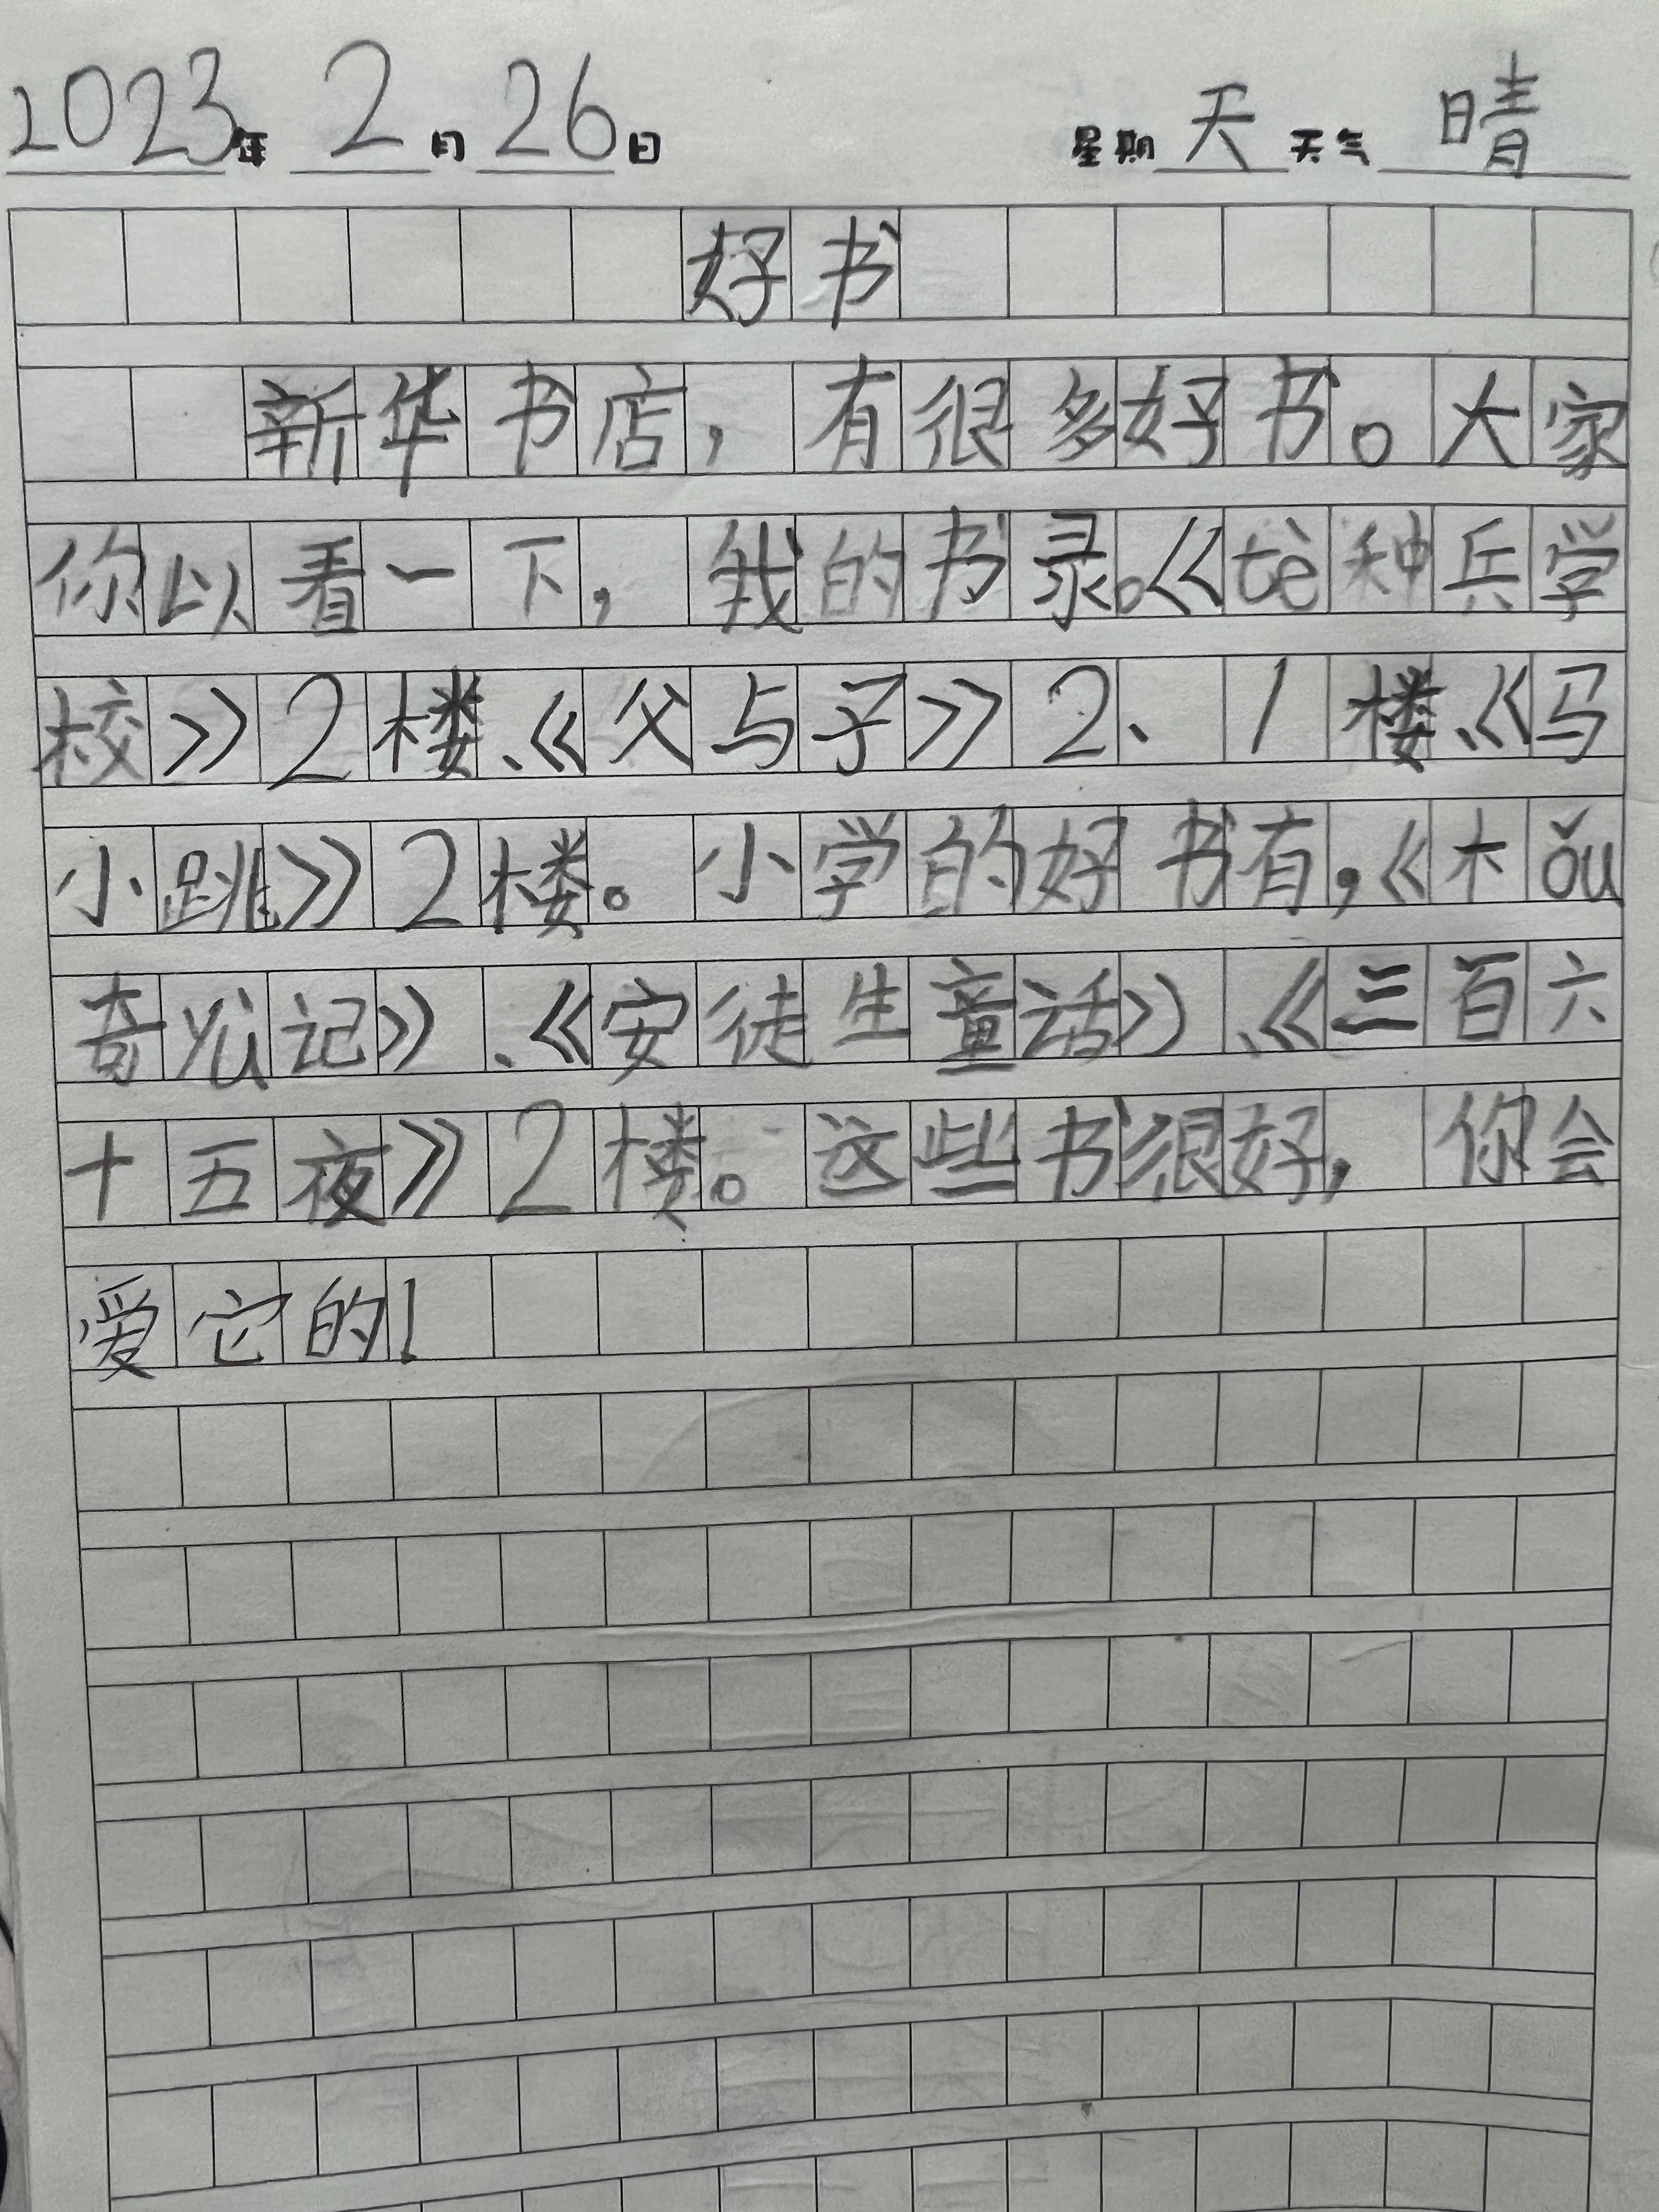 2023年 2月 26日 星期天 天气 晴
好书
新华书店，有很多好书。大家
你以看一下，我的书录。《tè种兵学
校》2楼、《父与子》2、1楼、《马
小跳》2楼。小学的好书有，《木ǒu
奇yù记》、《安徒生童话》、《三百六
十五夜》2楼。这些书很好，你会
爱它的！